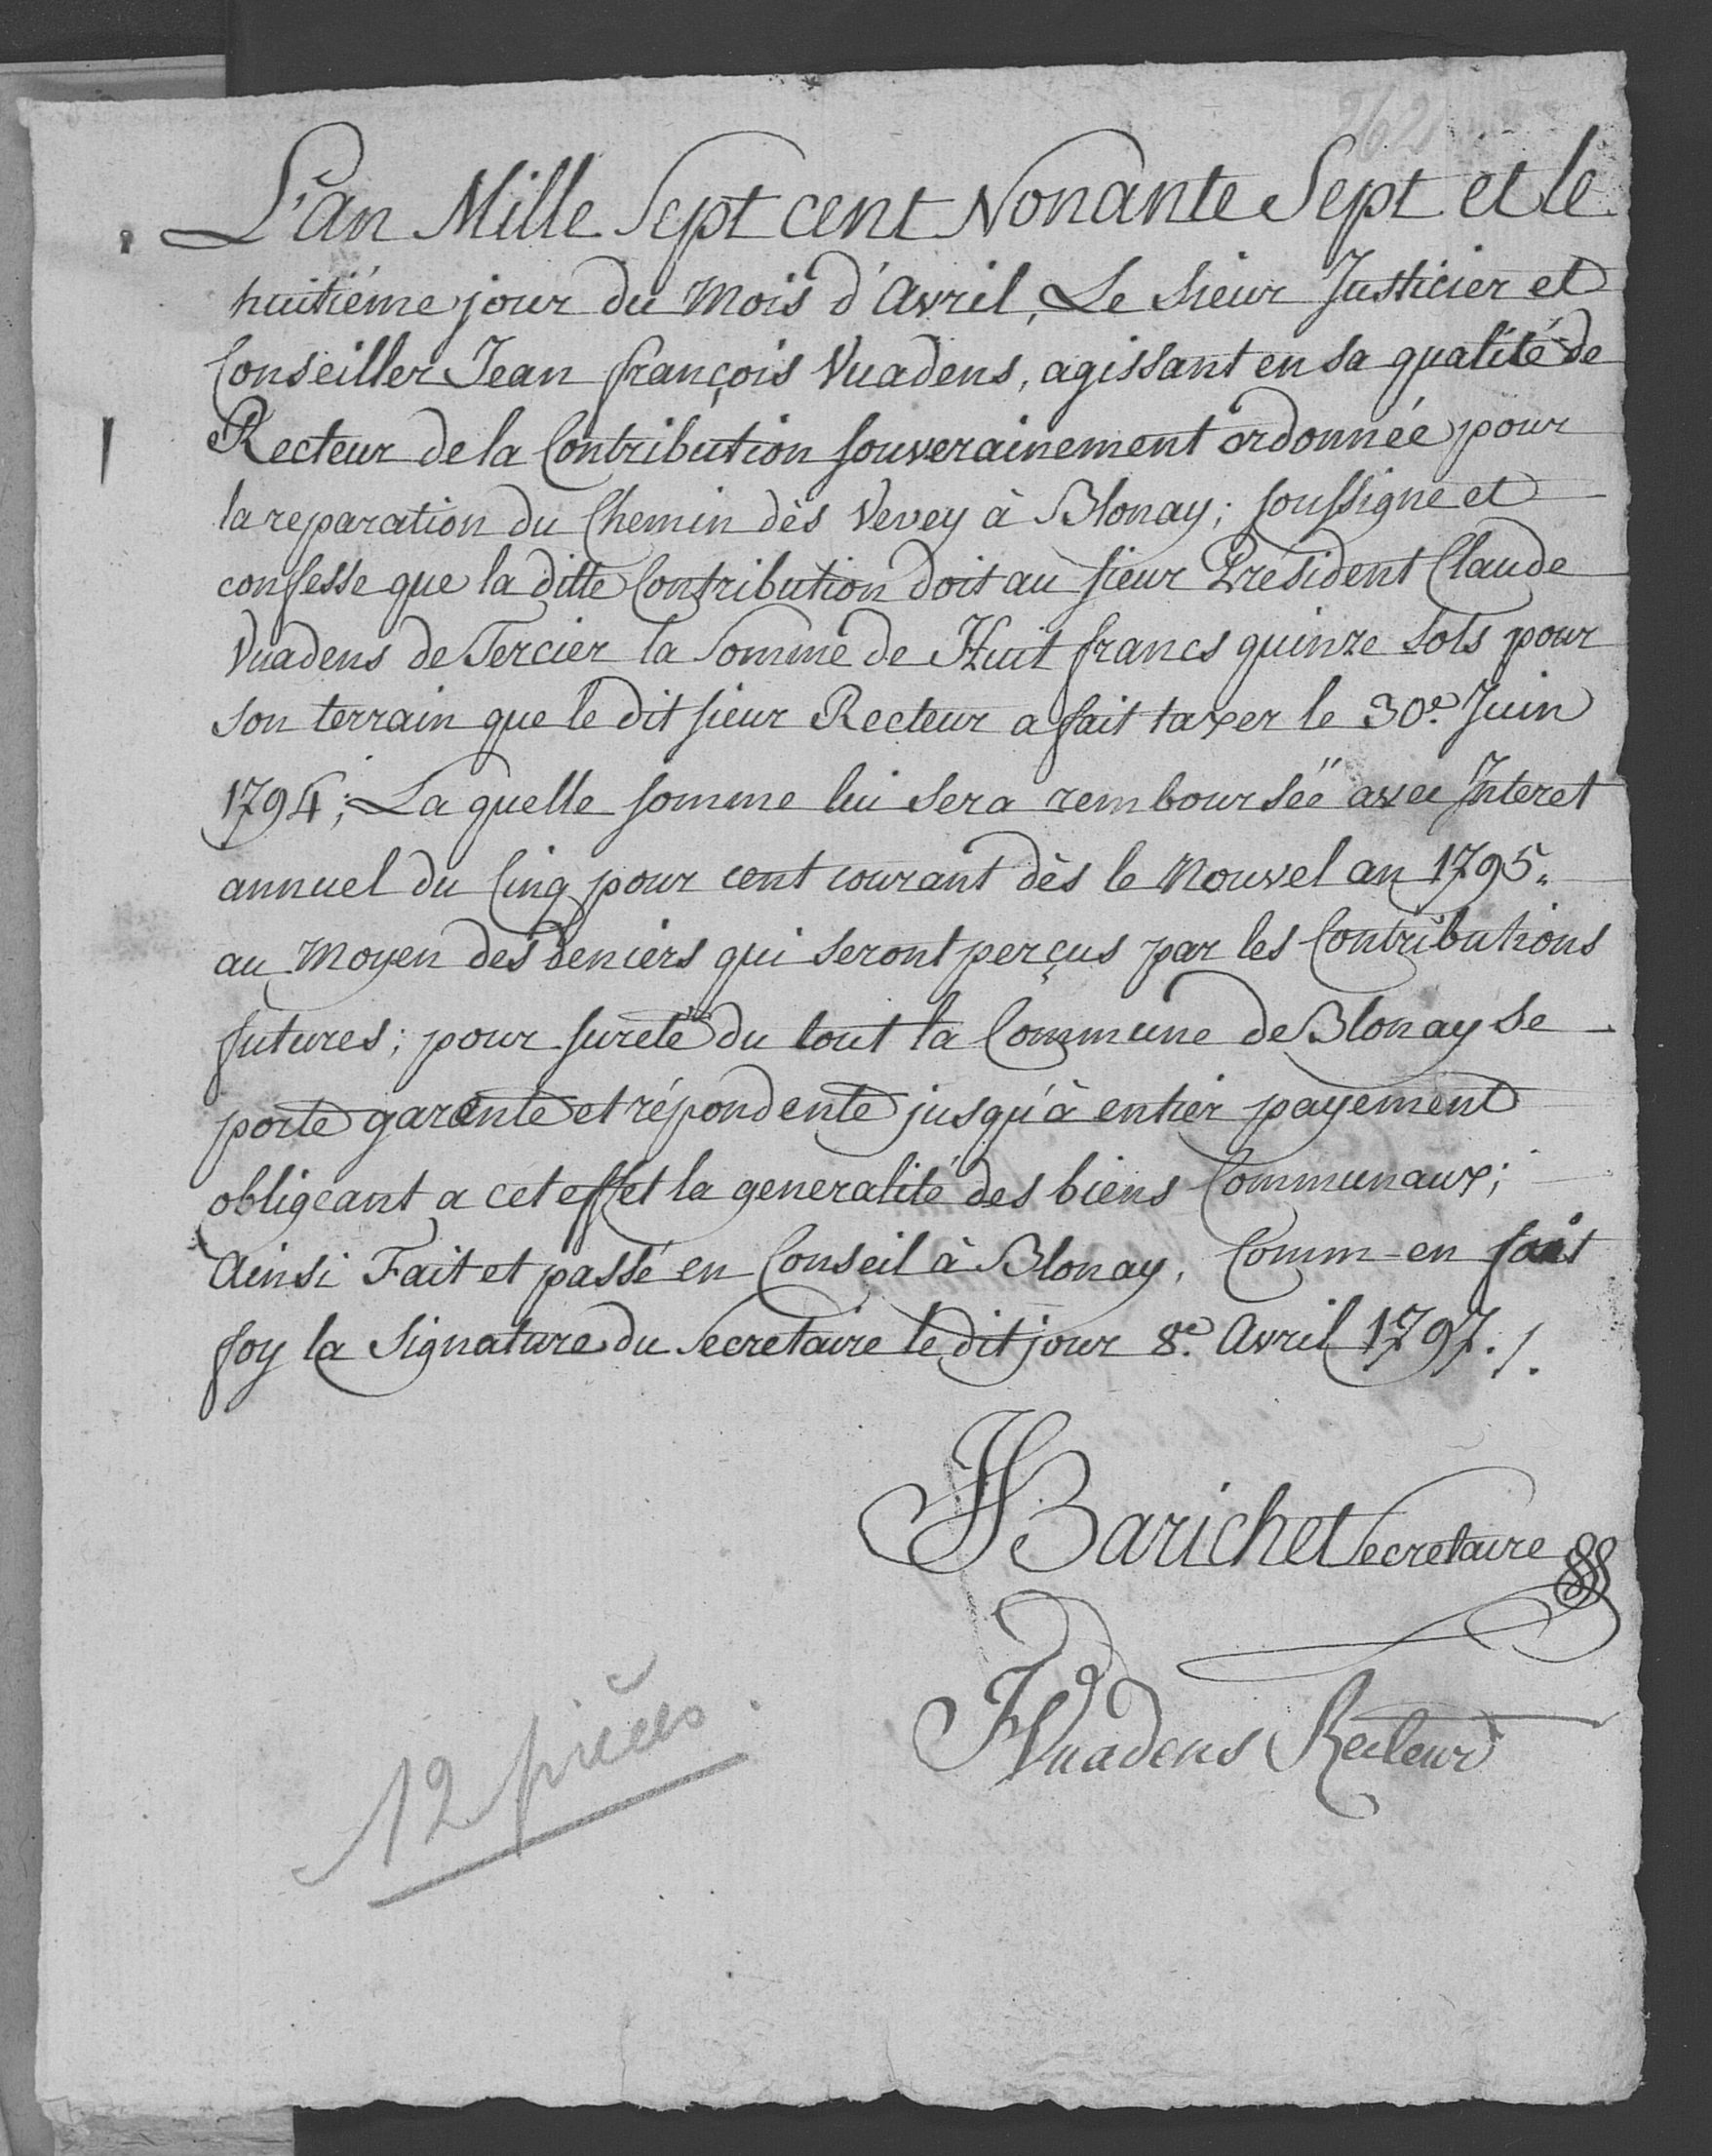 262
L'an Mille Sept cent Nonante Sept et le
huitiéme jour du Mois d'Avril, Le Sieur Justicier et
Conseiller Jean françois Vuadens, agissant en sa qualité de
Recteur de la Contribution souverainement ordonnée pour
la reparation du Chemin dès Vevey à Blonay; soussigne et
confesse que la ditte Contribution doit au sieur President Claude
Vuadens de Tercier la Somme de Huit francs quinze sols pour
son terrain que le dit sieur Recteur a fait taxer le 30e. Juin
1794; La quelle somme lui sera remboursée avec Interet
annuel du Cinq pour cent courant dès le Nouvel an 1795.
au Moyen des deniers qui seront perçus par les Contributions
futures; pour sureté du tout la Commune de Blonay se
porte garente et répondente jusqu'à entier payement
obligeant a cet effet la generalité des biens Communaux;
Ainsi Fait et passé en Conseil à Blonay, Comm-en fait
foy la Signature du Secretaire le dit jour 8e. Avril 1797./.
Barichet Secretaire
Vuadens Recteur
12 pièces.